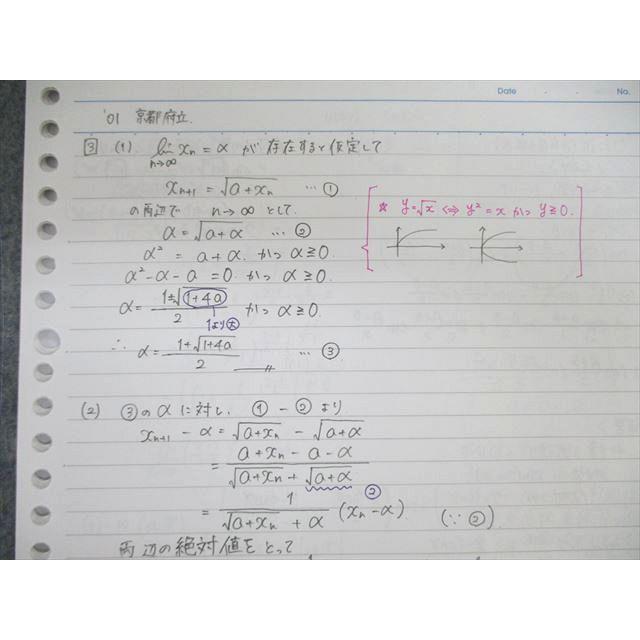 Date No.
'01 京都府立.
3 (1) lim n→∞ xn = α が存在すると仮定して
xn+1 = √(a+xn) … ①
の両辺で n→∞ として.
α = √(a+α) … ②
α² = a+α. かつ α≧0.
α²-α-a = 0. かつ α≧0.
α = (1±√(1+4a))/2 かつ α≧0.
1より大
∴ α = (1+√(1+4a))/2 … ③
☆ y=√x ⇔ y²=x かつ y≧0.
(2) ③のαに対し. ①-② より
xn+1 - α = √(a+xn) - √(a+α)
= (a+xn-a-α)/(√(a+xn)+√(a+α))
②
= 1/(√(a+xn)+α) (xn-α) (∵②)
両辺の絶対値をとって